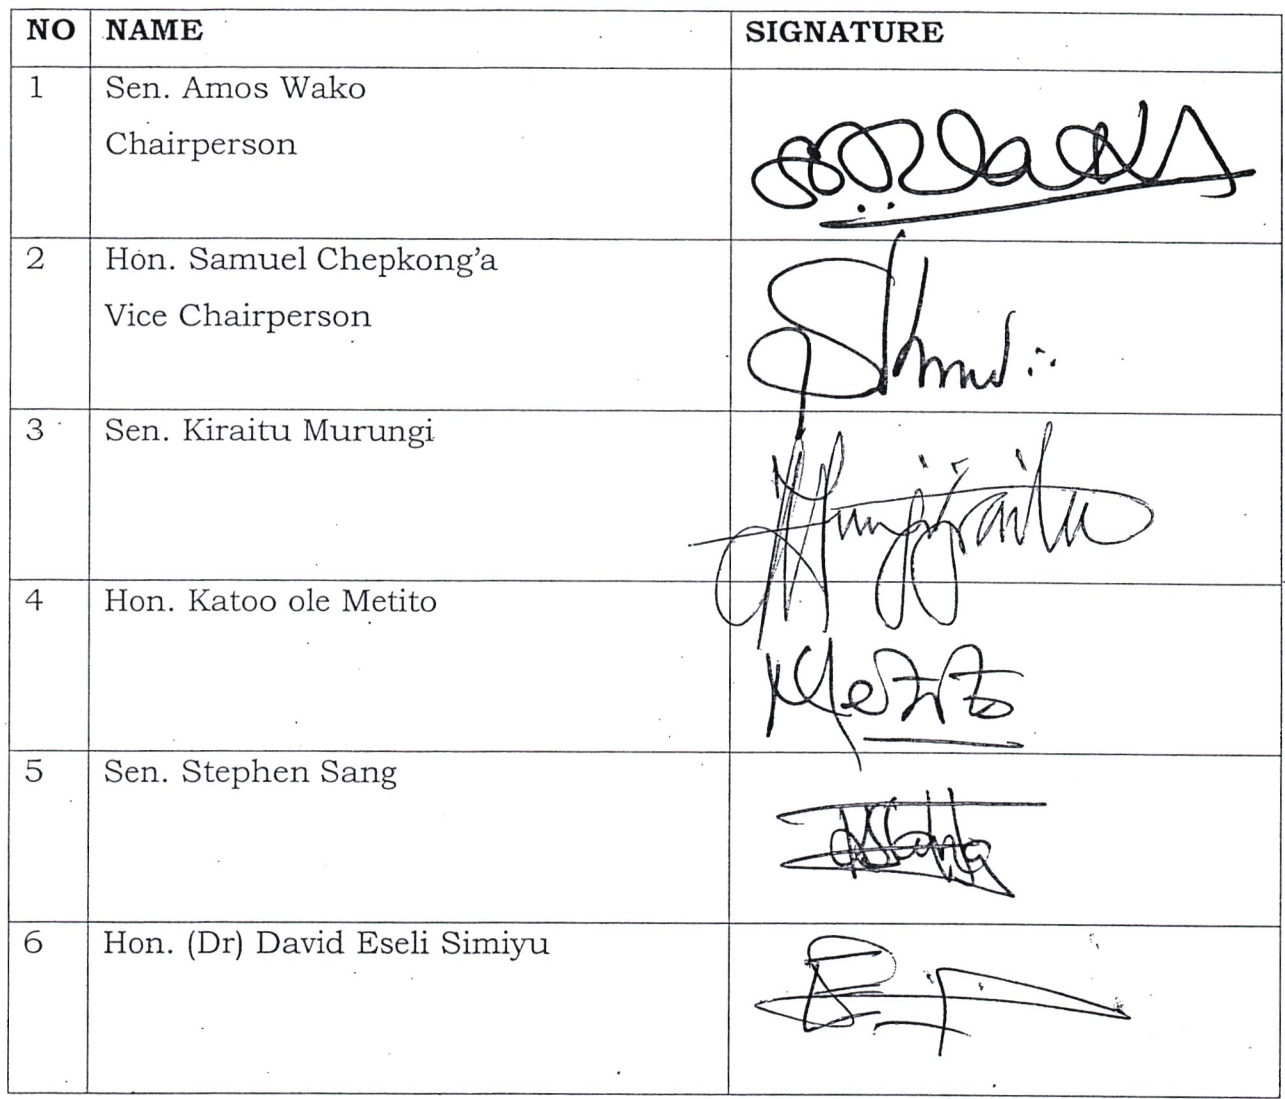 NO NAME SIGNATURE
1 Sen. Amos Wako
Chairperson
2 Hon. Samuel Chepkong'a
Vice Chairperson
3 Sen. Kiraitu Murungi
4 Hon. Katoo ole Metito
5 Sen. Stephen Sang
6 Hon. (Dr) David Eseli Simiyu